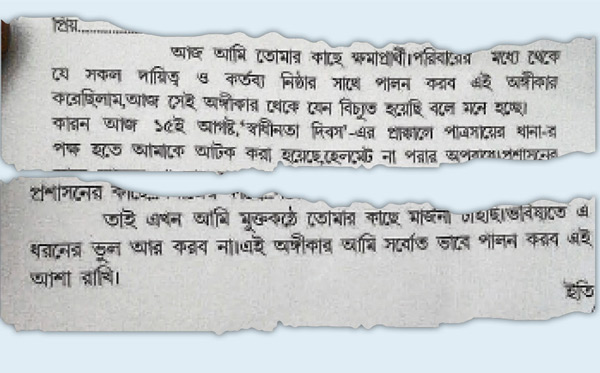 প্রিয়....................
আজ আমি তোমার কাছে ক্ষমাপ্রার্থী।পরিবারের মধ্যে থেকে
যে সকল দায়িত্ব ও কর্তব্য নিষ্ঠার সাথে পালন করব এই অঙ্গীকার
করেছিলাম,আজ সেই অঙ্গীকার থেকে যেন বিচ্যুত হয়েছি বলে মনে হচ্ছে।
কারন আজ ১৫ই আগষ্ট,'স্বাধীনতা দিবস'-এর প্রাক্কালে পাত্রসায়ের থানা-র
পক্ষ হতে আমাকে আটক করা হয়েছে,হেলমেট না পরার অপরাধে।প্রশাসনের
প্রশাসনের কাছে
তাই এখন আমি মুক্তকন্ঠে তোমার কাছে মার্জনা চাইছি।ভবিষ্যতে এ
ধরনের ভুল আর করব না।এই অঙ্গীকার আমি সর্বোত ভাবে পালন করব এই
আশা রাখি।
ইতি